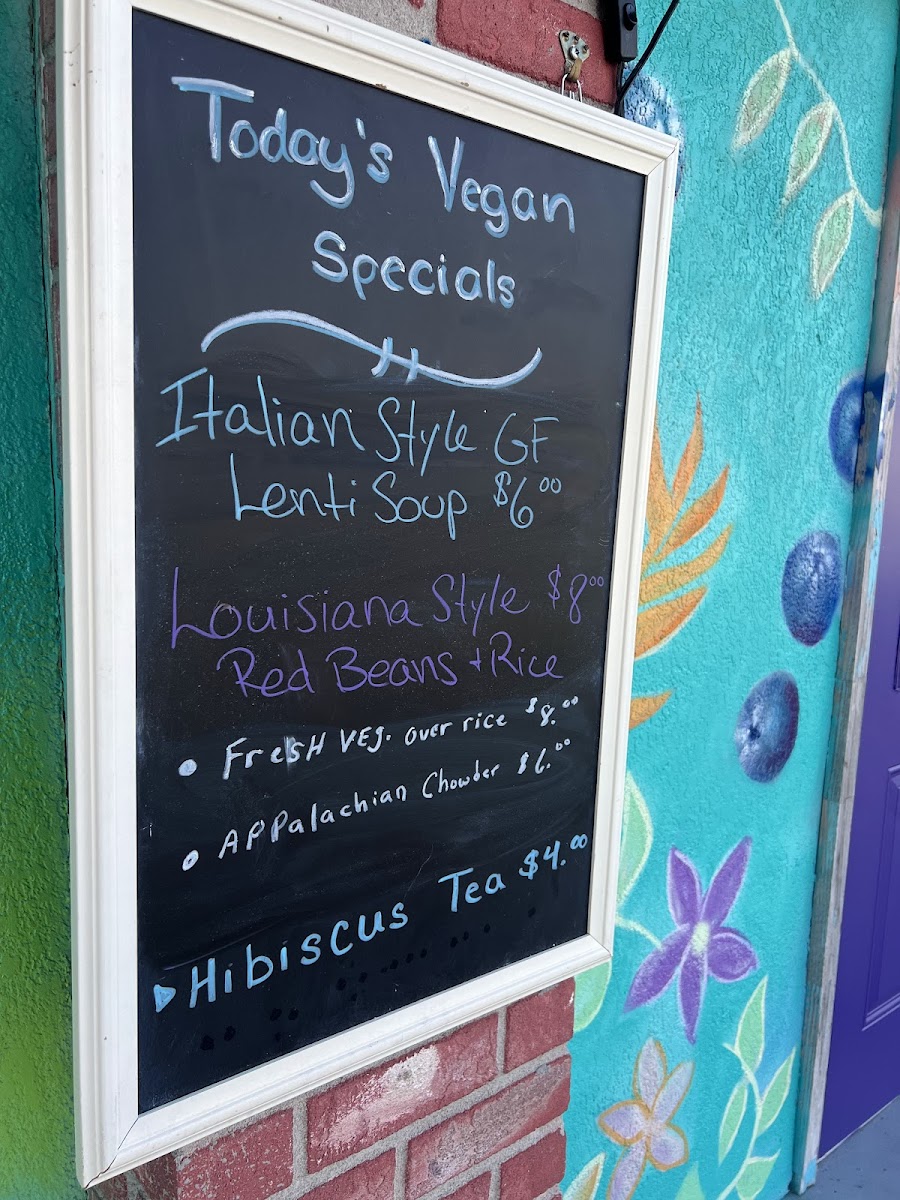 Today's Vegan
Specials
Italian Style GF
Lenti Soup $6.00
Louisiana Style $8.00
Red Beans + Rice
• FresH VEg. over rice $8.00
• APPalachian Chowder $6.00
▷ Hibiscus Tea $4.00